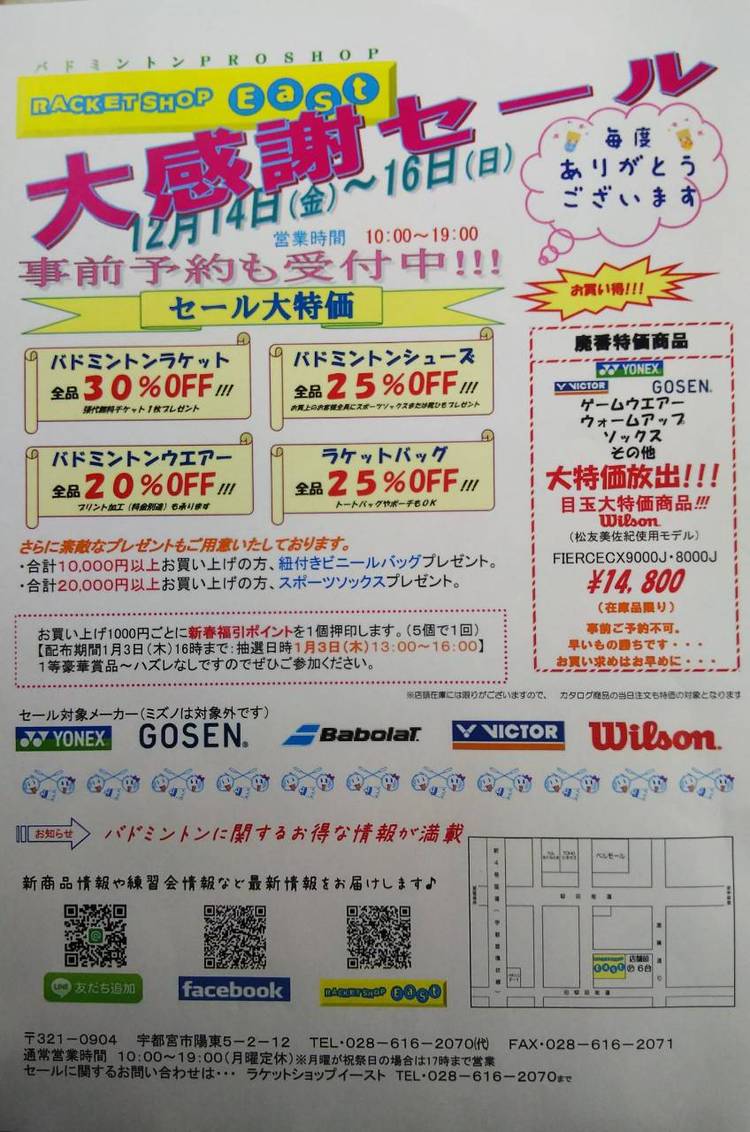 バドミントンPROSHOP
RACKET SHOP East
大感謝セール
12月14日(金)～16日(日)
営業時間 10:00～19:00
毎度
ありがとう
ございます
事前予約も受付中!!!
セール大特価
バドミントンラケット
全品30%OFF!!!
張代無料チケット1枚プレゼント
バドミントンシューズ
全品25%OFF!!!
お買上のお客様全員にスポーツソックスまたは靴ひもプレゼント
バドミントンウエアー
全品20%OFF!!!
プリント加工(料金別途)も承ります
ラケットバッグ
全品25%OFF!!!
トートバッグやポーチもOK
お買い得!!!
廃番特価商品
YONEX
VICTOR GOSEN
ゲームウエアー
ウォームアップ
ソックス
その他
大特価放出!!!
目玉大特価商品!!!
Wilson
(松友美佐紀使用モデル)
FIERCECX9000J・8000J
¥14,800
(在庫品限り)
事前ご予約不可。
早いもの勝ちです・・・
お買い求めはお早めに・・・
さらに素敵なプレゼントもご用意いたしております。
・合計10,000円以上お買い上げの方、紐付きビニールバッグプレゼント。
・合計20,000円以上お買い上げの方、スポーツソックスプレゼント。
お買い上げ1000円ごとに新春福引ポイントを1個押印します。(5個で1回)
【配布期間1月3日(木)16時まで:抽選日時1月3日(木)13:00～16:00】
1等豪華賞品～ハズレなしですのでぜひご参加ください。
※店頭在庫には限りがございますので、 カタログ商品の当日注文も特価の対象となります
セール対象メーカー(ミズノは対象外です)
YONEX GOSEN® Babolat VICTOR Wilson.
お知らせ
バドミントンに関するお得な情報が満載
新商品情報や練習会情報など最新情報をお届けします♪
LINE 友だち追加
facebook
RACKET SHOP East
ベルモール
RACKET SHOP East
店舗前
Ⓟ6台
〒321-0904 宇都宮市陽東5-2-12 TEL・028-616-2070(代) FAX・028-616-2071
通常営業時間 10:00～19:00(月曜定休)※月曜が祝祭日の場合は17時まで営業
セールに関するお問い合わせは・・・ ラケットショップイースト TEL・028-616-2070まで